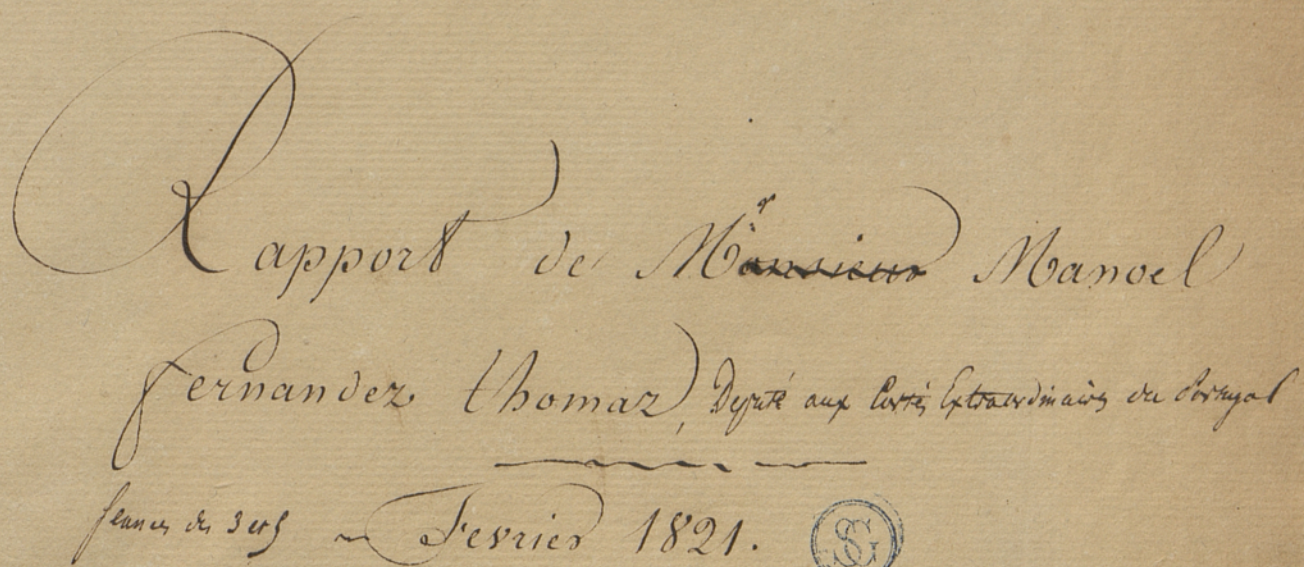 Rapport de Mr Monsieur Manoel
Fernandez thomaz, Deputé aux Cortès Extraordinaires du Portugal
Seances des 3 et 5 Fevrier 1821.
SG